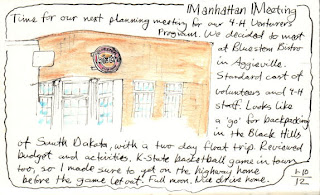 Manhattan Meeting
Time for our next planning meeting for our 4-H Venturers
Program. We decided to meet
at Bluestem Bistro
in Aggieville.
Standard cast of
volunteers and 4-H
staff. Looks like
a 'go' for backpacking
in the Black Hills
of South Dakota, with a two day float trip. Reviewed
budget and activities. K-State basketball game in town
too, so I made sure to get on the highway home
before the game let out. Full moon. Nice drive home.
1-10
12